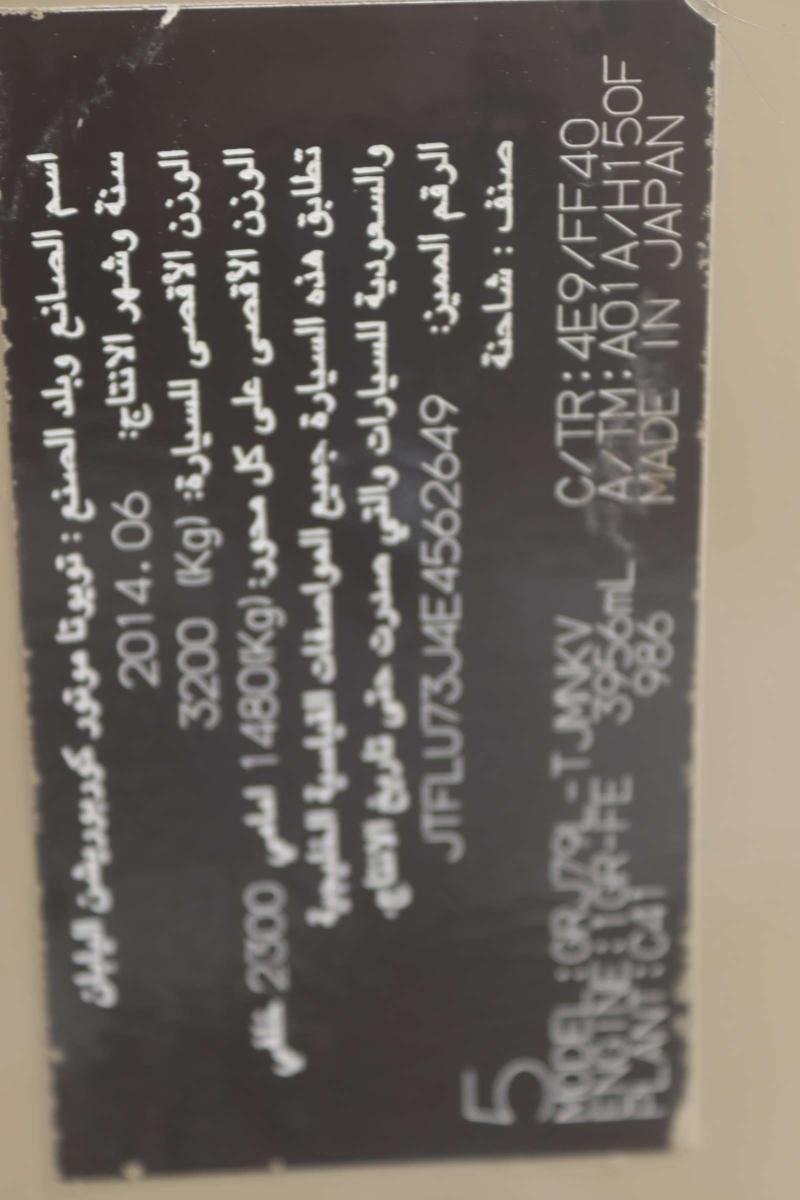 اسم الصانع وبلد الصنع : تويوتا موتور كوربوريشن اليابان
سنة وشهر الانتاج: 2014.06
الوزن الاقصى للسيارة: 3200 (Kg)
الوزن الاقصى على كل محور: 1480(Kg) امامي 2300 خلفي
تطابق هذه السيارة جميع المواصفات القياسية الخليجية
والسعودية للسيارات والتي صدرت حتى تاريخ الانتاج.
الرقم المميز: JTFLU73J4E4562649
صنف : شاحنة
5
MODEL:GRJ79L-TJMNKV C/TR:4E9/FF40
ENGINE:1GR-FE 3956mL A/TM:A01A/H150F
PLANT:C41 986 MADE IN JAPAN